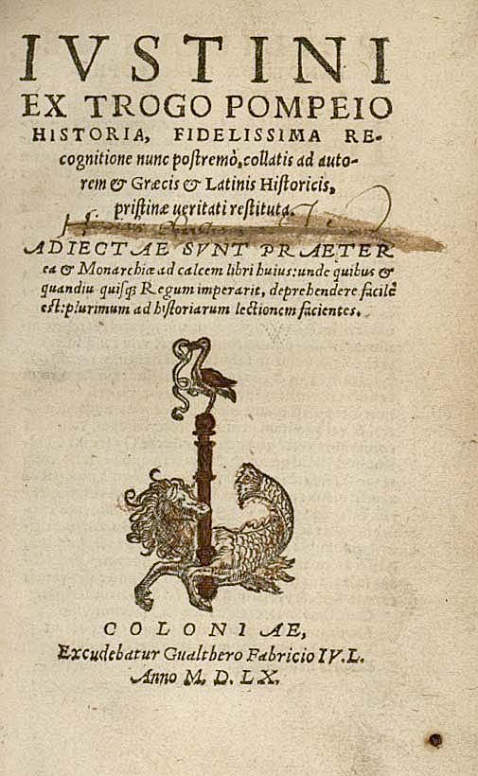 IVSTINI
EX TROGO POMPEIO
HISTORIA, FIDELISSIMA RE-
cognitione nunc postremò, collatis ad auto-
rem & Græcis & Latinis Historicis,
pristinæ veritati restituta.
ADIECTAE SVNT PRAETER
ea & Monarchiæ ad calcem libri huius: unde quibus &
quandiu quisq; Regum imperarit, deprehendere facilè
est: plurimum ad historiarum lectionem facientes.
COLONIAE,
Excudebatur Gualthero Fabricio IV.L.
Anno M. D. LX.